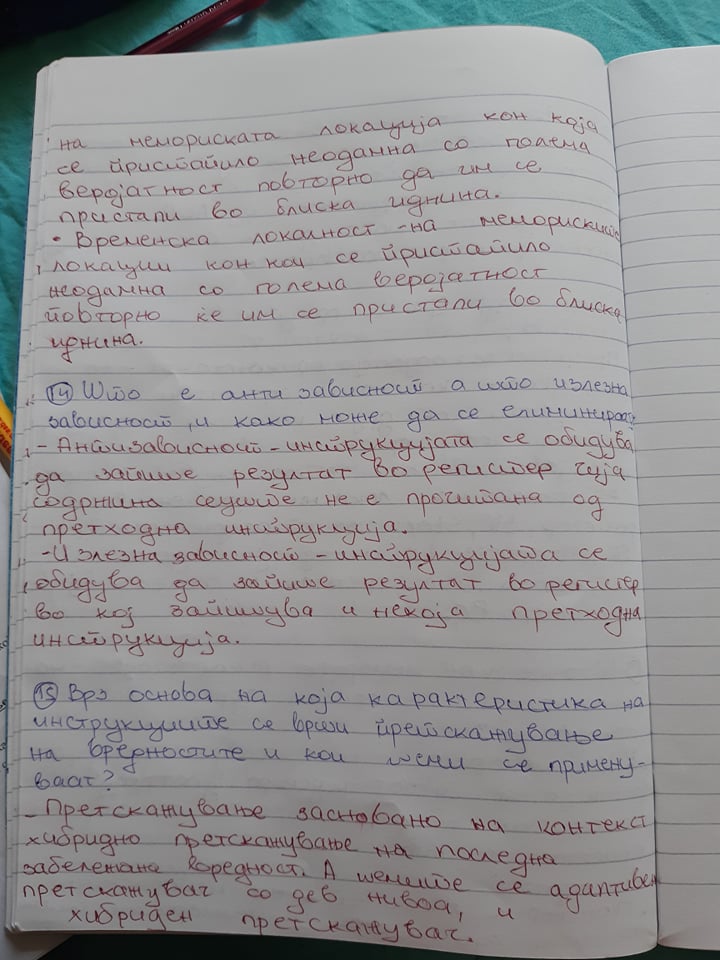 на мемориската локација кон која
се пристапило неодамна со голема
веројатност повторно да им се
пристапи во блиска иднина.
• Временска локалност - на мемориските
локации кон кои се пристапило
неодамна со голема веројатност
повторно ќе им се пристапи во блиска
иднина.
14 Што е анти зависност а што излезна
зависност, и како може да се елиминираат?
- Антизависност - инструкцијата се обидува
да запише резултат во регистер чија
содржина сеуште не е прочитана од
претходна инструкција.
- Излезна зависност - инструкцијата се
обидува да запише резултат во регистер
во кој запишува и некоја претходна
инструкција.
15 Врз основа на која карактеристика на
инструкциите се врши претскажување
на вредностите и кои шеми се примену-
ваат?
- Претскажување засновано на контекст
хибридно претскажување на последна
забележана вредност. А шемите се адаптивен
претскажувач со две нивоа, и
хибриден претскажувач.